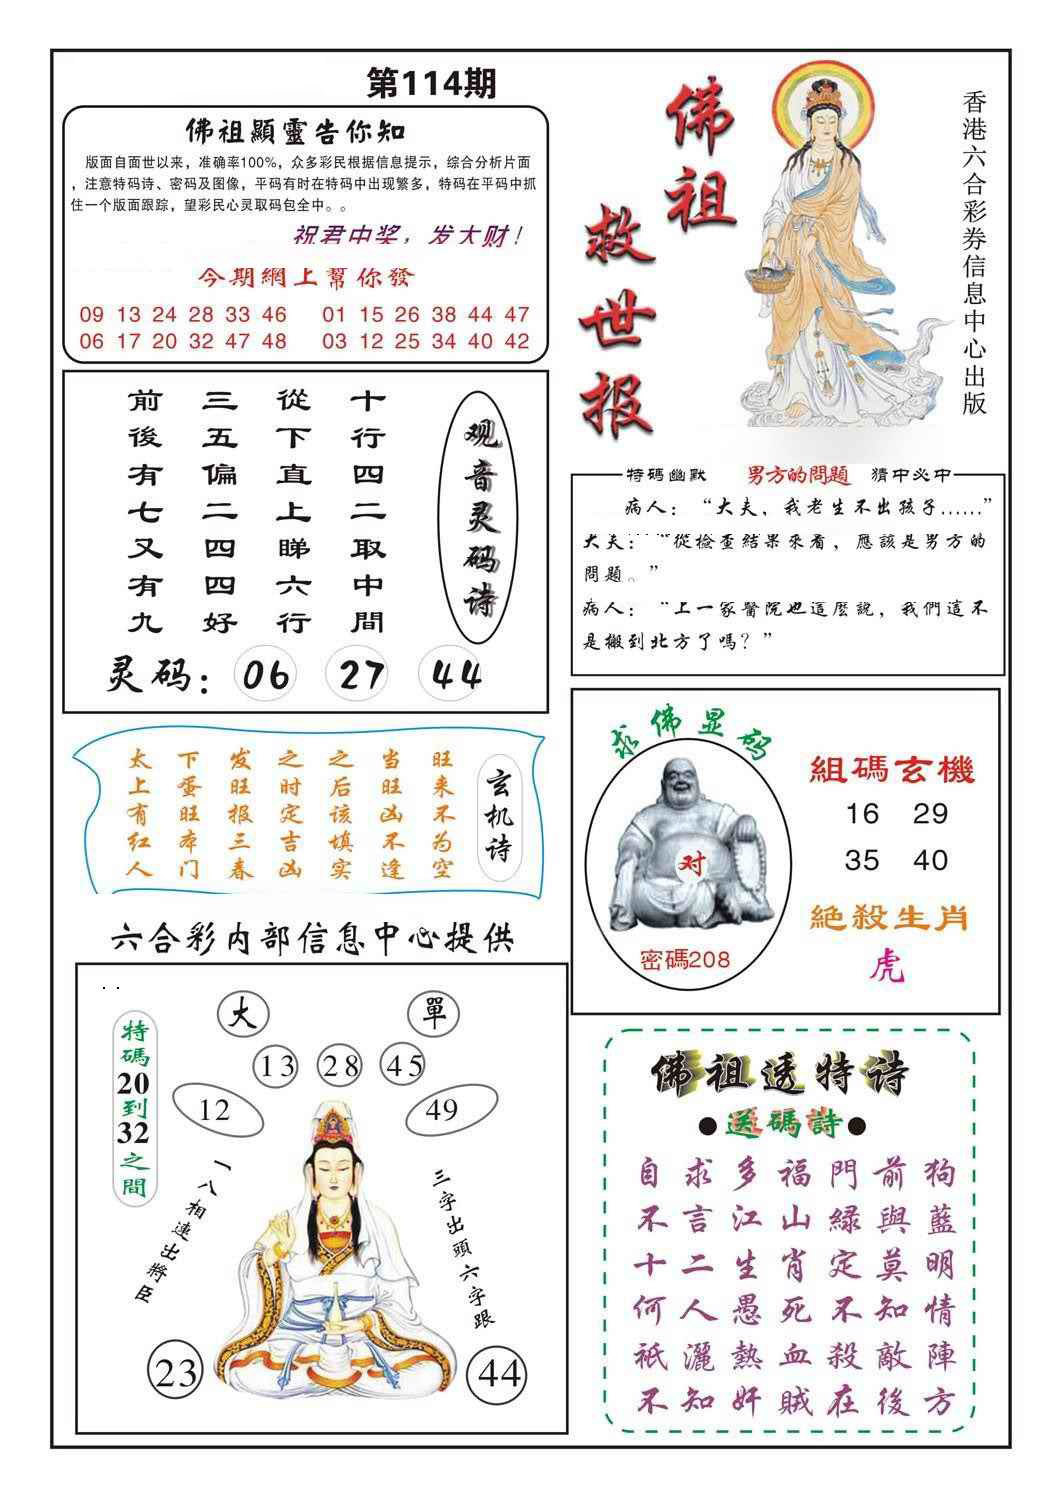 第114期
佛祖顯靈告你知
版面自面世以来，准确率100%，众多彩民根据信息提示，综合分析片面
，注意特码诗、密码及图像，平码有时在特码中出现繁多，特码在平码中抓
住一个版面跟踪，望彩民心灵取码包全中。。
祝君中奖，发大财！
今期網上幫你發
09 13 24 28 33 46
01 15 26 38 44 47
06 17 20 32 47 48
03 12 25 34 40 42
佛祖
救世报
香港六合彩券信息中心出版
观音灵码诗
十行四二取中間
從下直上睇六行
三五偏二四四好
前後有七又有九
灵码：06 27 44
特碼幽默 男方的問題 猜中必中
病人：“大夫，我老生不出孩子……”
大夫：“從檢查結果來看，應該是男方的
問題。”
病人：“上一家醫院也這麼說，我們這不
是搬到北方了嗎？”
玄机诗
旺来不为空
当旺凶不逢
之后该填实
之时定吉凶
发旺报三春
下蛋旺本门
太上有红人
求佛显码
对
密碼208
組碼玄機
16 29
35 40
絕殺生肖
虎
六合彩内部信息中心提供
特碼20到32之間
大
單
13
28
45
12
49
一八相連出將臣
三字出頭六字跟
23
44
佛祖透特诗
●送碼詩●
自求多福門前狗
不言江山緑與藍
十二生肖定莫明
何人愚死不知情
衹灑熱血殺敵陣
不知奸賊在後方